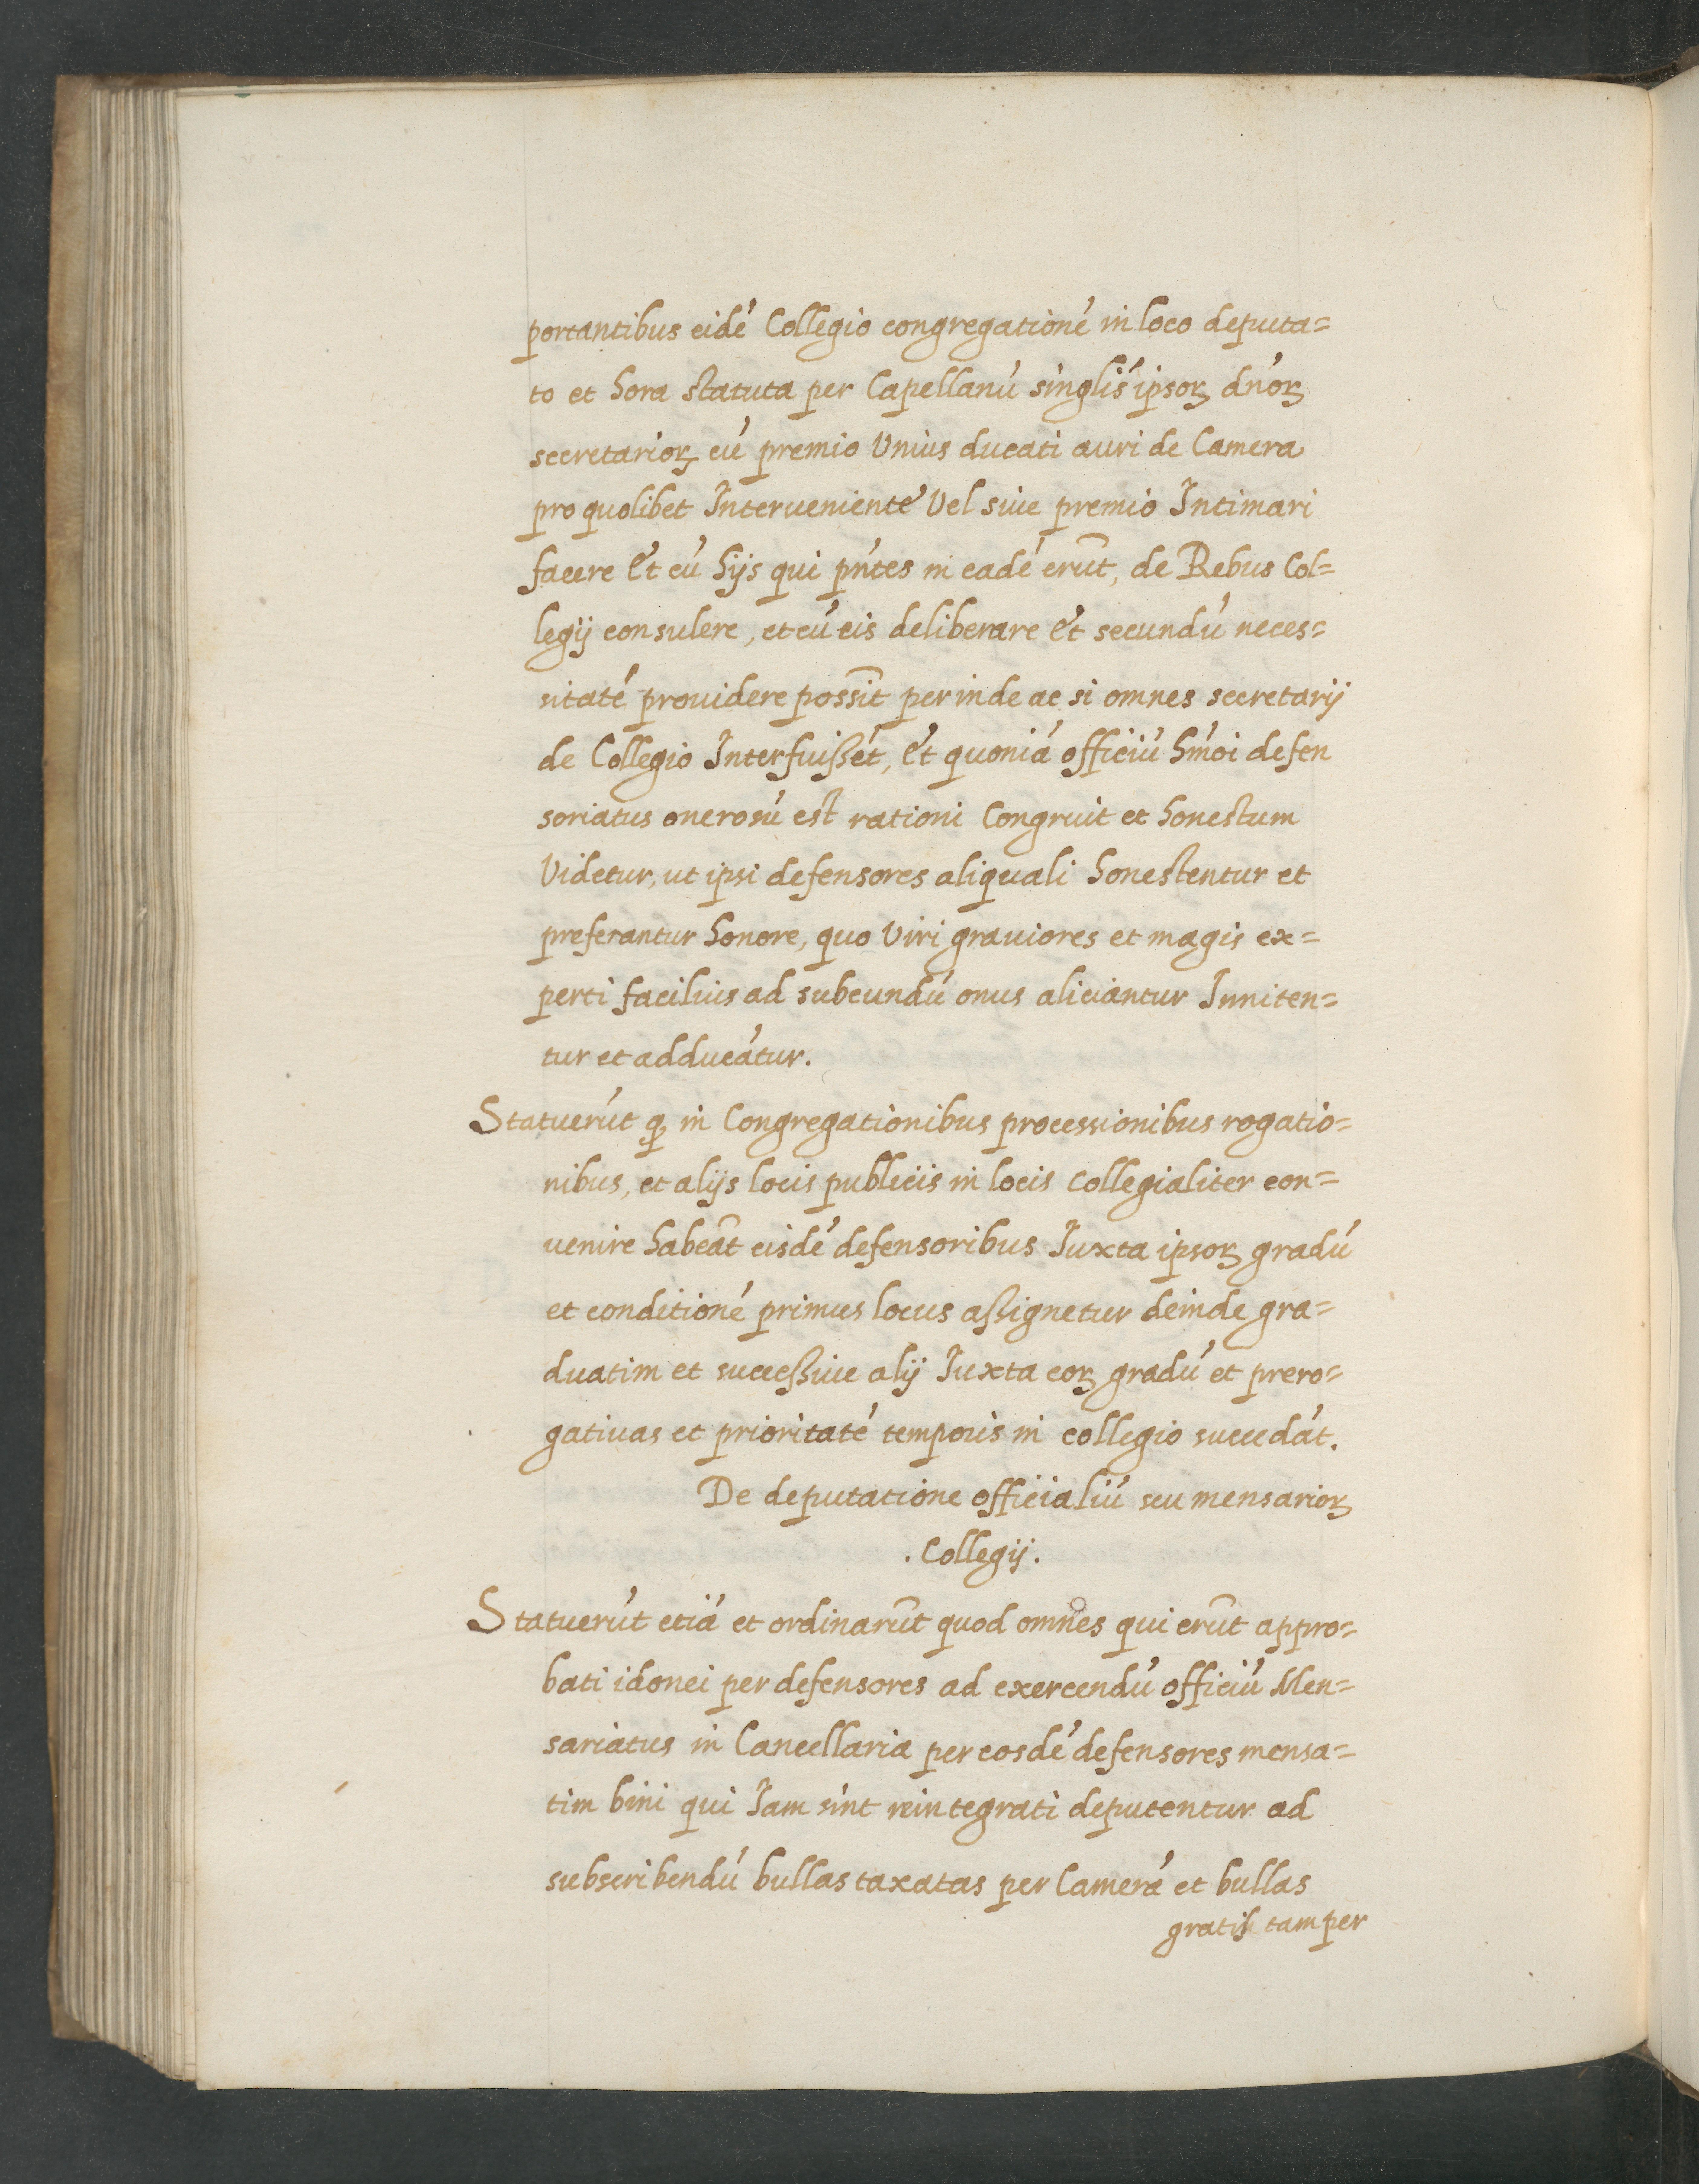 portantibus eidé Collegio congregationé in loco deputa=
to et hora statuta per Capellanú singlis' ipsoꝝ dn'oꝝ
secretarioꝝ cú premio Vnius ducati auri de Camera
pro quolibet Interueniente Vel sine premio Intimari
facere Et cú hijs qui pn'tes in eadé erūt, de Rebus Col=
legij consulere, et cú eis deliberare Et secundú neces=
sitaté prouidere possīt perinde ac si omnes secretarij
de Collegio Interfuißét, Et quoniá officiú hm'oi defen
soriatus onerosú est rationi Congruit et honestum
Videtur, ut ipsi defensores aliquali honestentur et
preferantur honore, quo Viri grauiores et magis ex=
perti facilius ad subeundú onus aliciantur Inuiten=
tur et adducátur.
Statuerút ꝙ in Congregationibus processionibus rogatio=
nibus, et alijs locis publicis in locis Collegialiter con=
uenire habeāt eisdé defensoribus Iuxta ipsoꝝ gradú
et conditioné primus locus aßignetur deinde gra=
duatim et succeßiue alij Iuxta eoꝝ gradú et prero=
gatiuas et prioritaté temporis in collegio succedát.
De deputatione officialiú seu mensarioꝝ
. Collegij.
Statuerút etiá et ordinarūt quod omnes qui erūt appro=
bati idonei per defensores ad exercendú officiú Men=
sariatus in Cancellaria per eosdé defensores mensa=
tim bini qui Iam sint reintegrati deputentur ad
subscribendú bullas taxatas per Camerá et bullas
gratis tam per